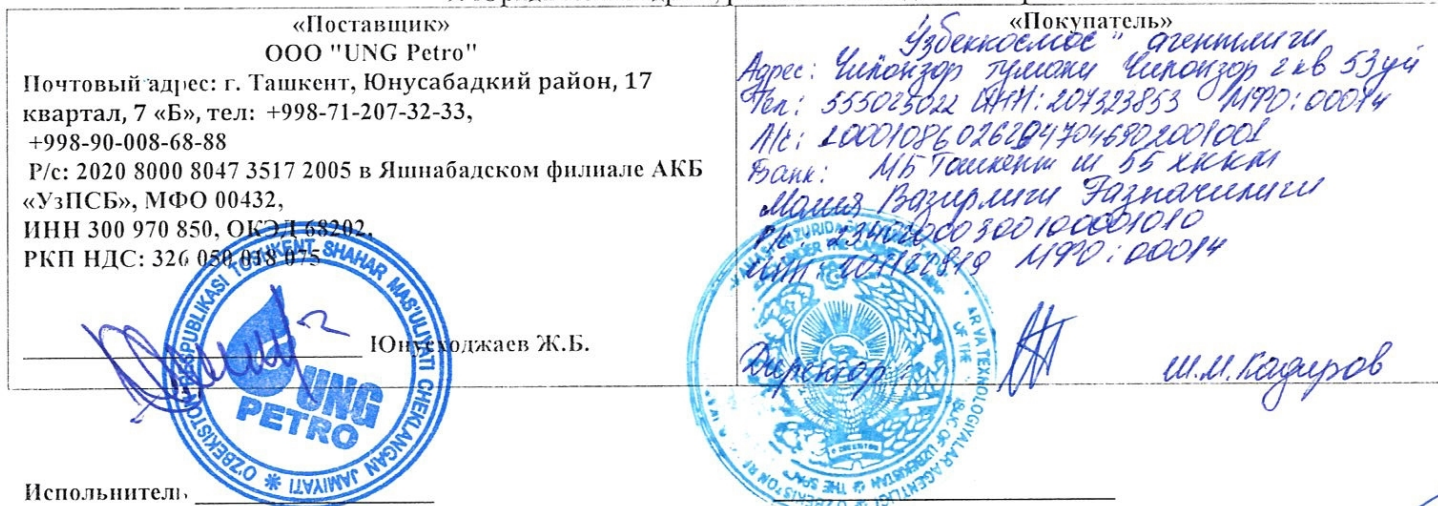 «Поставщик»
ООО "UNG Petro"
Почтовый адрес: г. Ташкент, Юнусабадкий район, 17
квартал, 7 «Б», тел: +998-71-207-32-33,
+998-90-008-68-88
Р/с: 2020 8000 8047 3517 2005 в Яшнабадском филиале АКБ
«УзПСБ», МФО 00432,
ИНН 300 970 850, ОКЭД 68202,
РКП НДС: 326 050 018 075
Юнусходжаев Ж.Б.
UNG
PETRO
O'ZBEKISTON RESPUBLIKASI TOSHKENT SHAHAR MAS'ULIYATI CHEKLANGAN JAMIYATI
Испольнитель
«Покупатель»
"Узбеккосмос" агентлиги
Адрес: Чилонзор тумани Чилонзор 2 кв 53 уй
Тел.: 555025022 ИНН: 207323853 МФО: 00014
Банк: МБ Тошкент ш 55 ХККМ
Молия Вазирлиги Ғазначилиги
Р/с: 23402000300100001010
ИНН: 201122819 МФО: 00014
Директор Ш.М. Кадиров